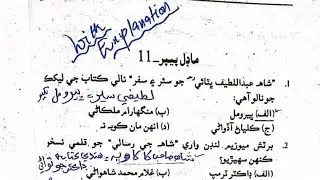 With
Explanation
ماڊل پيپر ـ 11
1. "شاهہ عبداللطيف ڀٽائي جو سير ۽ سفر" نالي ڪتاب جي ليکڪ
جو نالو آهي:
(الف) ڀيرومل
(ب) منگهارام ملڪاڻي
(ج) ڪلياڻ آڏواڻي
(د) انهن مان ڪوبہ نہ
2. برٽش ميوزيم لنڊن واري "شاهہ جي رسالي" جو قلمي نسخو
ڪنهن سهيڙيو؟
(الف) ڊاڪٽر ٽرمپ
(ب) غلام محمد شاهواڻي